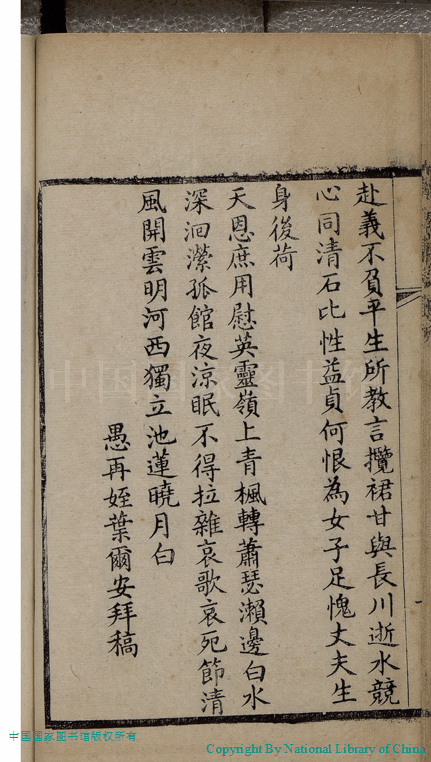 赴義不負平生所教言攬裙甘與長川逝水競
心同清石比性益貞何恨為女子足愧丈夫生
身後荷
天恩庶用慰英靈嶺上青楓轉蕭瑟瀨邊白水
深洄瀠孤館夜涼眠不得拉雜哀歌哀死節清
風開雲明河西獨立池蓮曉月白
愚再姪葉爾安拜稿
中国国家图书馆
中国国家图书馆版权所有
Copyright By National Library of China